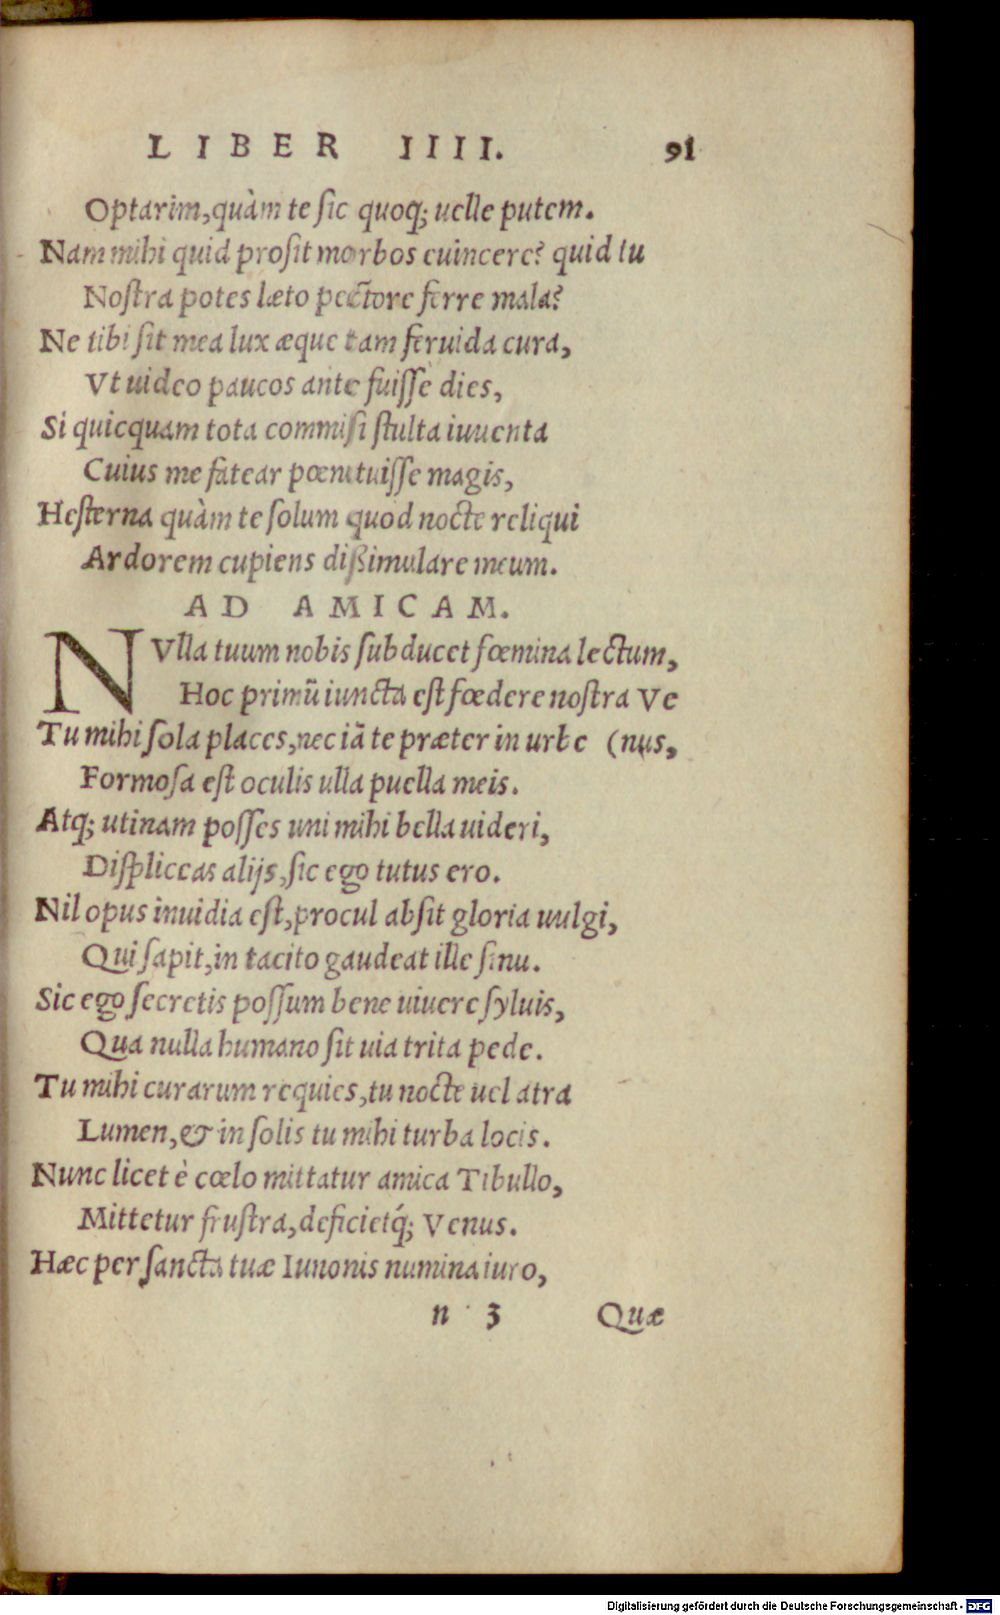 LIBER IIII. 91
Optarim, quàm te sic quoq; uelle putem.
Nam mihi quid prosit morbos euincere? quid tu
Nostra potes læto pectore ferre mala?
Ne tibi sit mea lux æque tam feruida cura,
Vt uideo paucos ante fuisse dies,
Si quicquam tota commisi stulta iuuenta
Cuius me fatear pœnituisse magis,
Hesterna quàm te solum quod nocte reliqui
Ardorem cupiens dißimulare meum.
AD AMICAM.
NVlla tuum nobis subducet fœmina lectum,
Hoc primũ iuncta est fœdere nostra Ve
Tu mihi sola places, nec iã te præter in urbe (nus,
Formosa est oculis ulla puella meis.
Atq; utinam posses uni mihi bella uideri,
Displiceas alijs, sic ego tutus ero.
Nil opus inuidia est, procul absit gloria uulgi,
Qui sapit, in tacito gaudeat ille sinu.
Sic ego secretis possum bene uiuere syluis,
Qua nulla humano sit uia trita pede.
Tu mihi curarum requies, tu nocte uel atra
Lumen, & in solis tu mihi turba locis.
Nunc licet è cœlo mittatur amica Tibullo,
Mittetur frustra, deficietq́; Venus.
Hæc per sancta tuæ Iunonis numina iuro,
n 3 Quæ
Digitalisierung gefördert durch die Deutsche Forschungsgemeinschaft - DFG